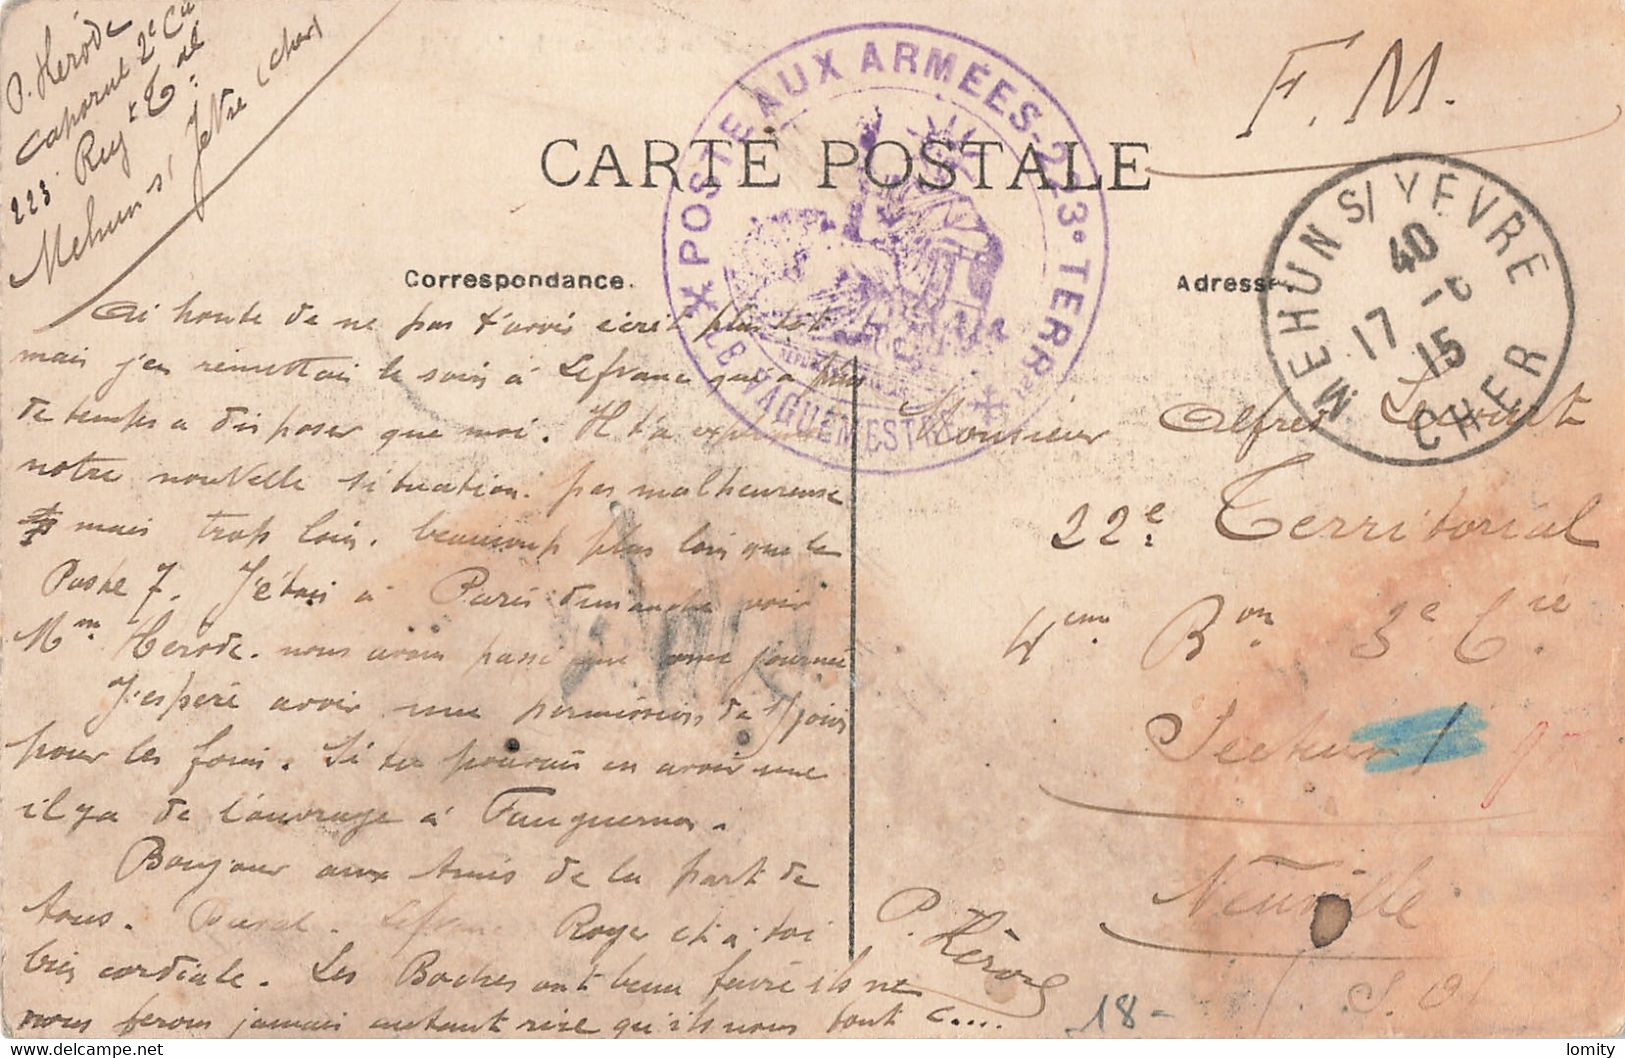 P. Hérode
Caporal 2e Cie
223e Regt Tal
Mehun s/ Yèvre (Cher)
CARTE POSTALE
F. M.
POSTE AUX ARMÉES - 223e TERRal
LE VAGUEMESTRE
MEHUN S/ YEVRE
40
17 -6
15
CHER
Correspondance.
Adresse
Ai honte de ne pas t'avoir écrit plus tôt
mais j'en remettais le soin à Lefranc qui a plus
de temps a disposer que moi. Il t'a exprimé
notre nouvelle situation. pas malheureuse
mais trop loin. beaucoup plus loin que le
Poste 7. J'étais à Paris dimanche voir
Mme Hérode. nous avons passé une journée
J'espère avoir une permission de jours
pour les foins. Si tu pouvais en avoir une
il y a de l'ouvrage à Fauguernon.
Bonjour aux Amis de la part de
tous. Duval. Lefranc Royer et à toi
bien cordiale. Les Boches ont beau faire ils ne
nous ferons jamais autant rire qu'ils nous font c....
P. Hérode
Monsieur Alfred
22e Territorial
4eme Bon 3e Cie
Secteur
Neuville
18-
lomity